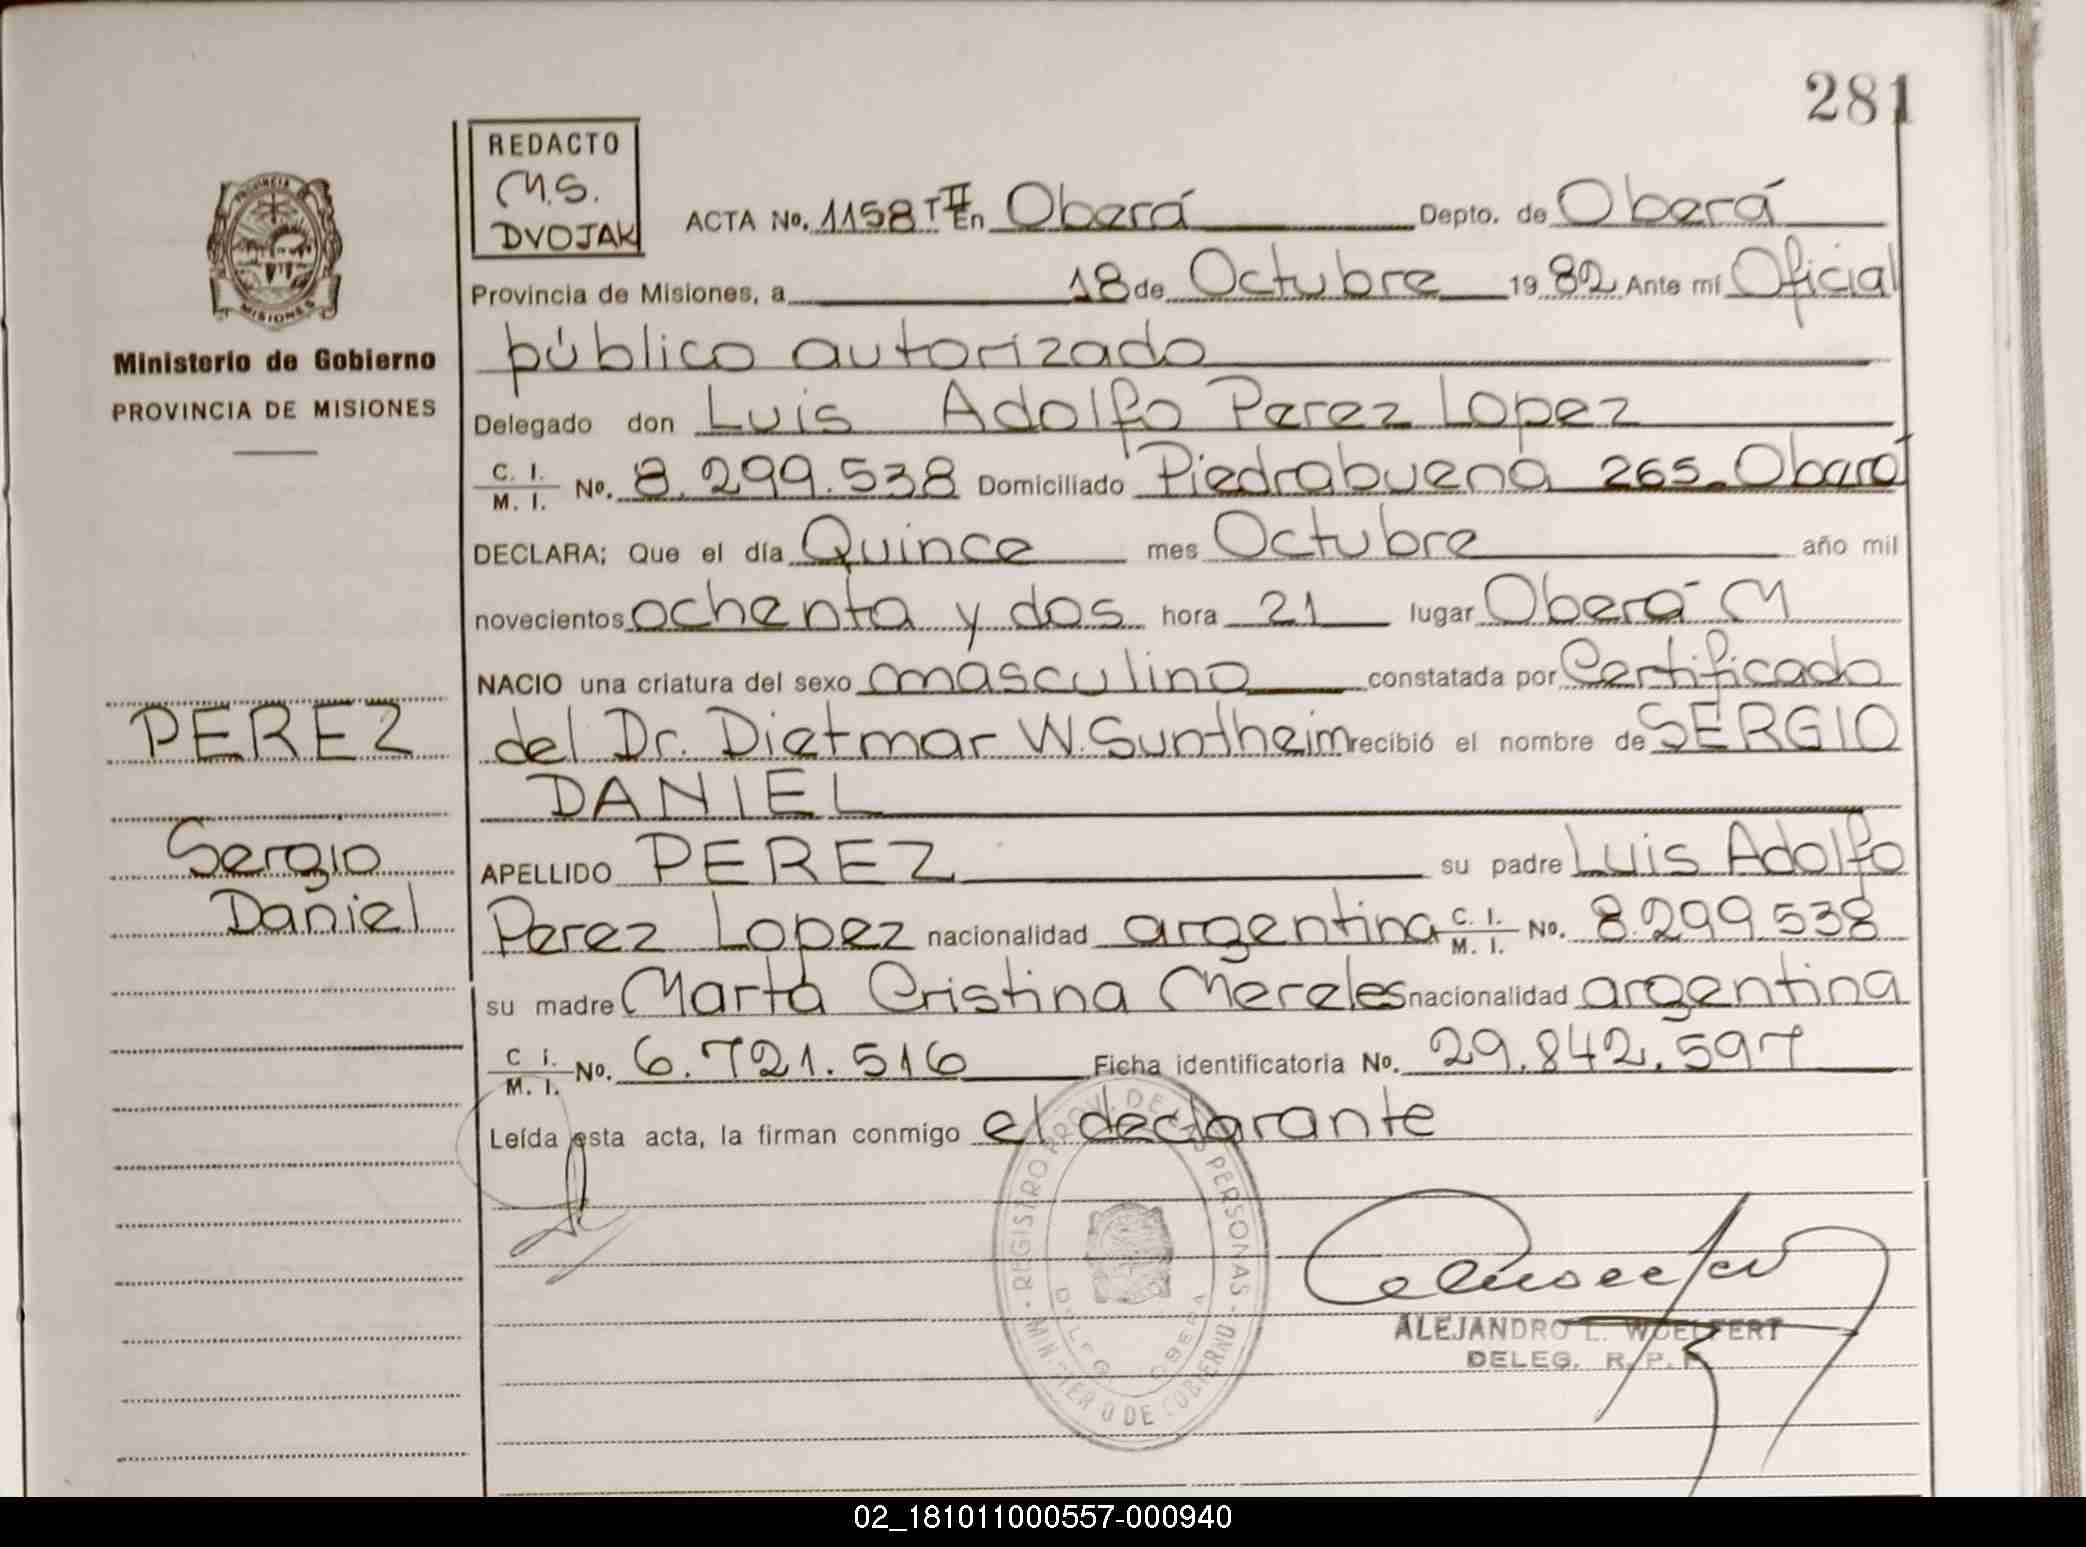 281
REDACTO
M.S.
DVOJAK
PROVINCIA
MISIONES
Ministerio de Gobierno
PROVINCIA DE MISIONES
ACTA No. 1158 T II En Oberá Depto. de Oberá
Provincia de Misiones, a 18 de Octubre 19 82 Ante mí Oficial
público autorizado
Delegado don Luis Adolfo Perez Lopez
C. I. / M. I. No. 8.299.538 Domiciliado Piedrabuena 265 - Oberá
DECLARA; Que el día Quince mes Octubre año mil
novecientos ochenta y dos hora 21 lugar Oberá - M
NACIO una criatura del sexo masculino constatada por Certificado
del Dr. Dietmar W. Suntheim recibió el nombre de SERGIO
DANIEL
APELLIDO PEREZ su padre Luis Adolfo
Perez Lopez nacionalidad argentina C. I. / M. I. No. 8.299.538
su madre Marta Cristina Mereles nacionalidad argentina
C. I. / M. I. No. 6.721.516 Ficha identificatoria No. 29.842.597
Leída esta acta, la firman conmigo el declarante
PEREZ
Sergio
Daniel
REGISTRO PROV. DE LAS PERSONAS - MINISTERIO DE GOBIERNO
DELEG. OBERA
ALEJANDRO L. WOELFERT
DELEG. R. P. P.
02_181011000557-000940